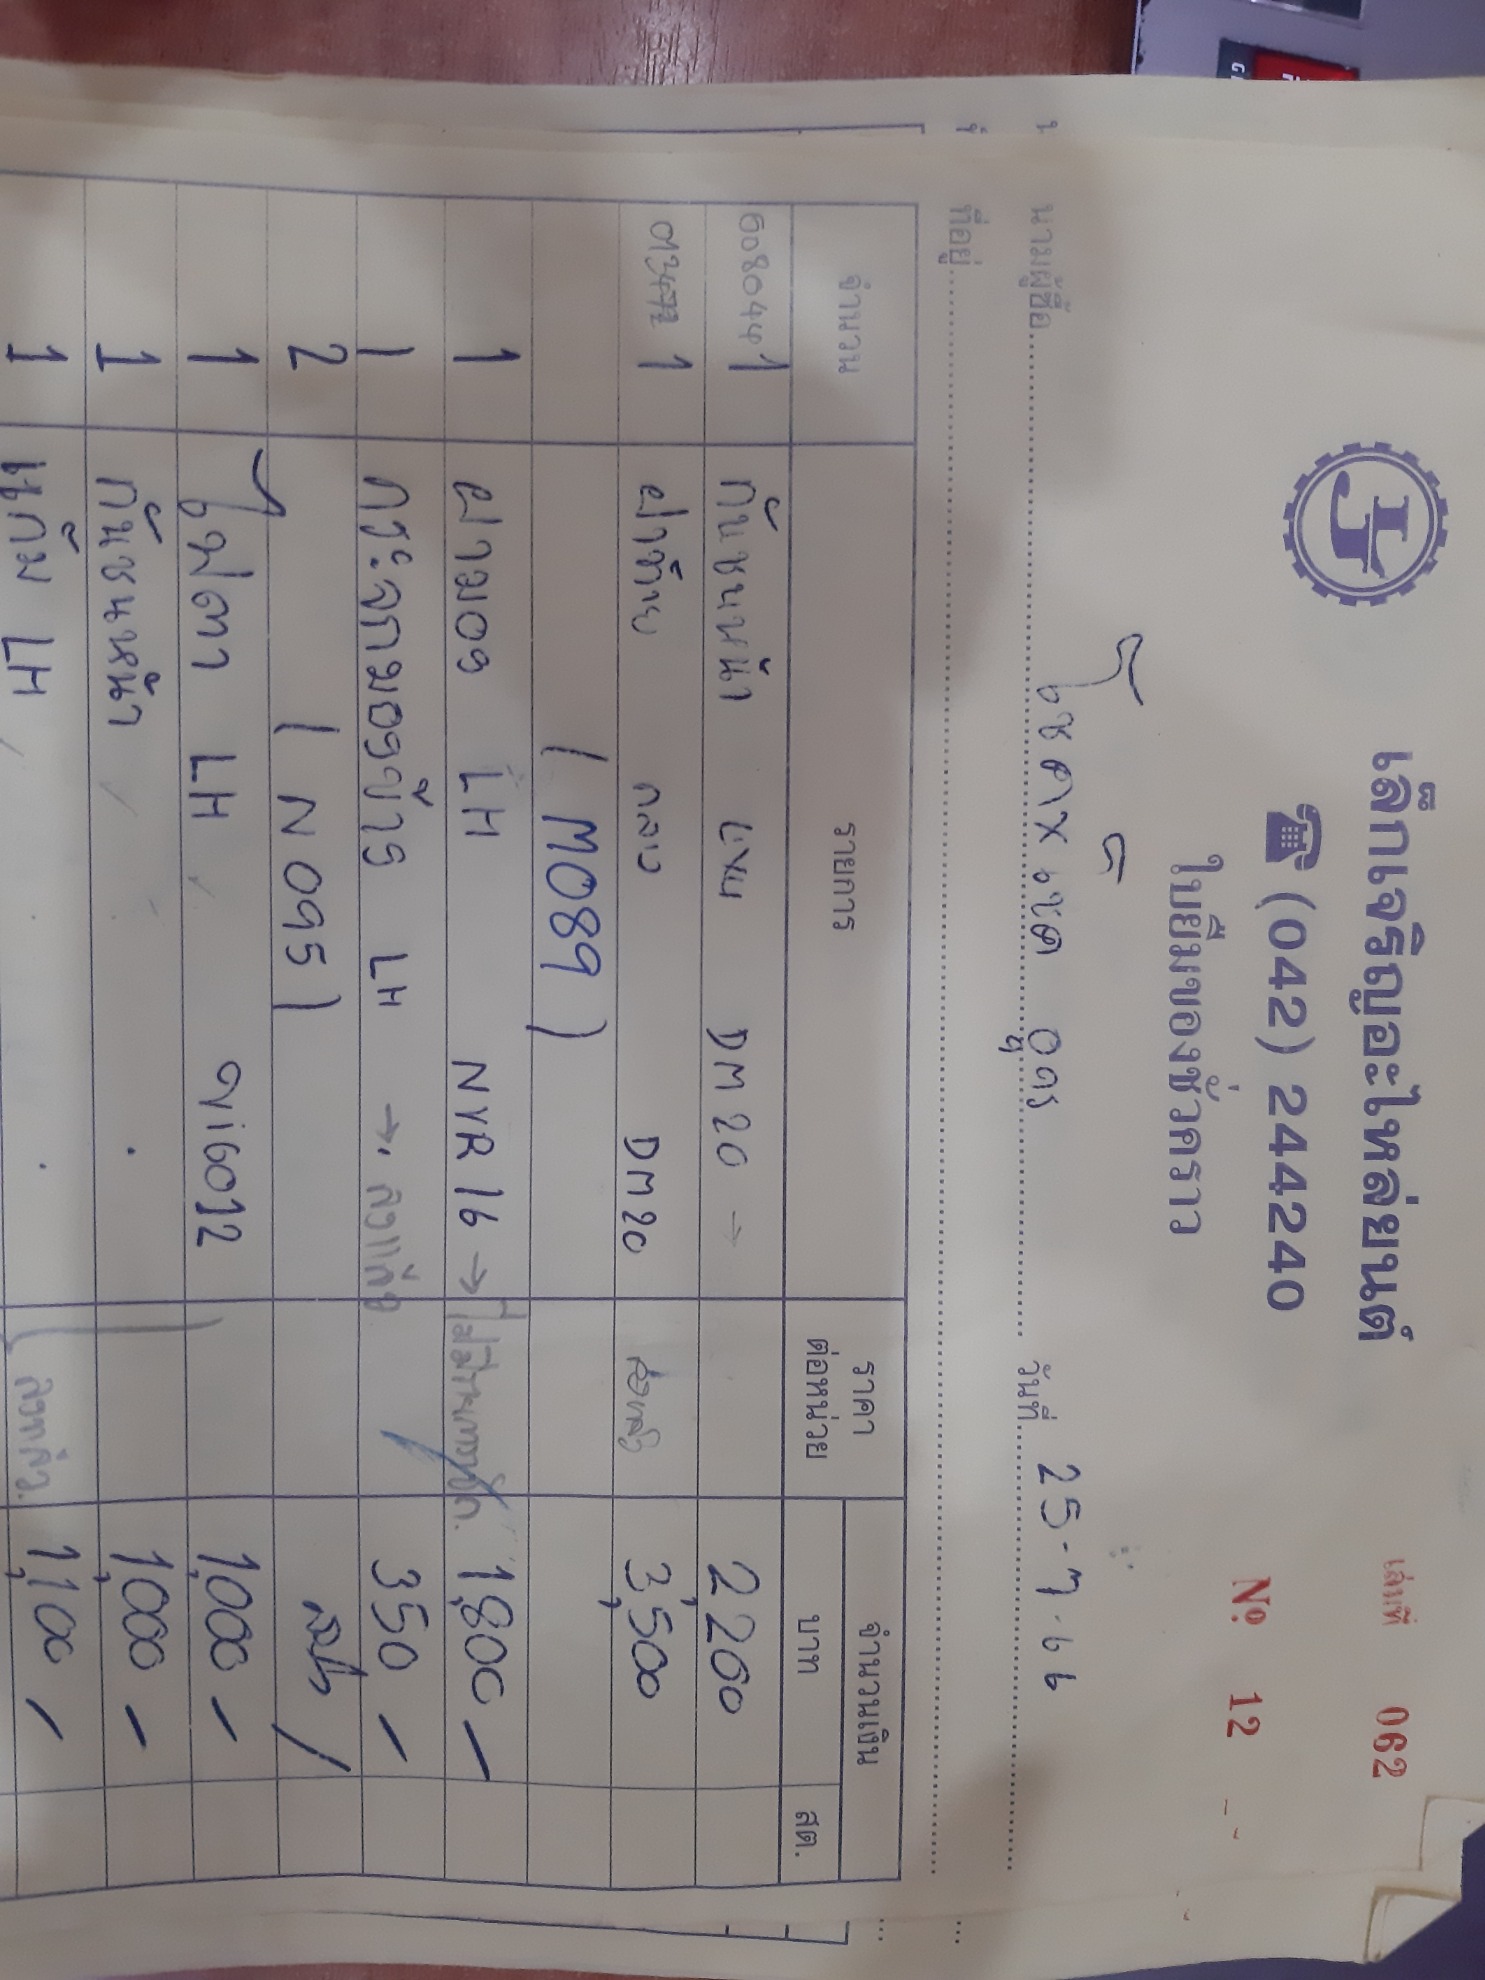 เล่มที่ 062
เล็กเจริญอะไหล่ยนต์
(042) 244240
Nº 12
ใบยืมของชั่วคราว
นามผู้ซื้อ โชคาxโชค อุดร วันที่ 25-7-66
ที่อยู่
จำนวน รายการ ราคาต่อหน่วย จำนวนเงิน
บาท สต.
1 กันชนหน้า DM20 → 2,200
1 ฝาท้าย กลาง DM20 3,500
(M089)
1 ฝามอง LH NVR16 → 1,800 -
1 กระจกมองข้าง LH → ลงแล้ว 350 -
2 (N095)
1 ไฟตา LH 1,000 -
1 กันชนหน้า 1,000 -
1 แก้ม LH ลงแล้ว. 1,100 -